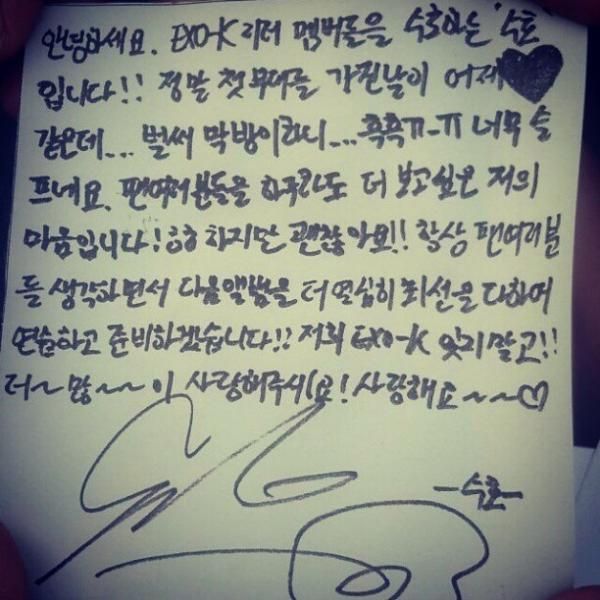 안녕하세요. EXO-K 리더 멤버들을 수호하는 '수호'
입니다!! 정말 첫무대를 가진날이 어제
같은데... 벌써 막방이라니... 흑흑ㅠ-ㅠ 너무 슬
프네요. 팬여러분들을 하루라도 더 보고싶은 저의
마음입니다! ㅎㅎ 하지만 괜찮아요!! 항상 팬여러분
들 생각하면서 다음앨범을 더 열심히 최선을 다하여
연습하고 준비하겠습니다!! 저희 EXO-K 잊지말고!!
더~ 많~~이 사랑해주시(요! 사랑해요~~♡
-수호-